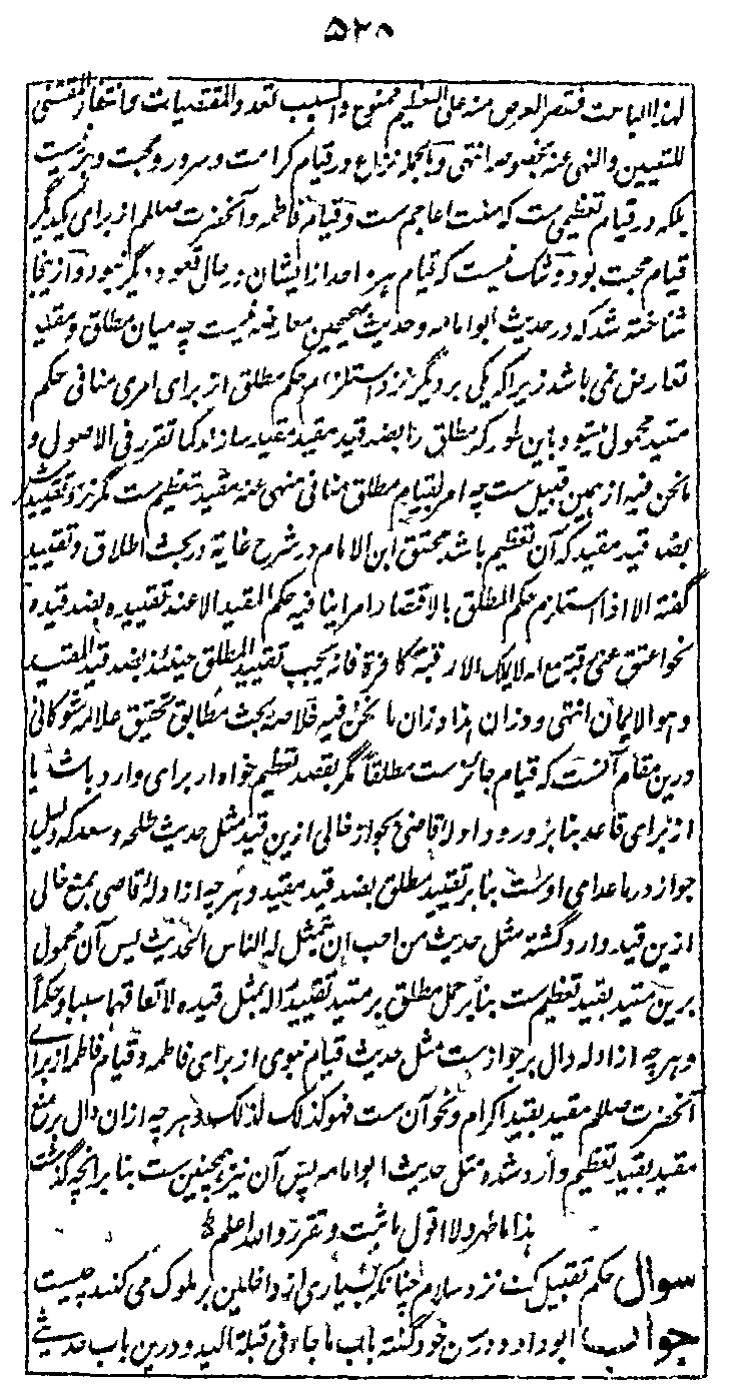 ۵۲۸
لهذا الباحث فتصر العرص منه على التعظيم ممنوع والسبب تعدد المقتضيات فانتفاء المقتضى
للتعيين والنهى عنه بخصوصه انتهى وبالجمله نزاع در قيام كرامت وسرور ومحبت وبر نيست
بلكه در قيام تعظيمى ست كه سنت اعاجم ست وقيام فاطمه وآنحضرت صللم از براى يكديگر
قيام محبت بود وشك نيست كه قيام هر واحد از ايشان در حال قعود ديگر نبود واز ينجا
شناخته شد كه در حديث ابو امامه وحديث صحيحين معارضه نيست چه ميان مطلق ومقيد
تعارض نمى باشد زيرا كه يكى بر ديگر نزد استلزام حكم مطلق از براى امرى منافى حكم
مقيد محمول ميشود باين طور كه مطلق را بضد قيد مقيد مقيد سازند كما تقرر فى الاصول و
ما نحن فيه از همين قبيل ست چه امر بقيام مطلق منافى منهى عنه مقيد تعظيم ست مگر نزد تقييدش
بضد قيد مقيد كه آن تعظيم باشد محقق ابن الامام در شرح غاية در بحث اطلاق وتقييد
گفته الا اذا استلزم حكم المطلق بالاقتضاء امرا ينافيه حكم المقيد الا عند تقييده بضد قيده
نحو اعتق عنى رقبة مع انه لا يملك الا رقبة كافرة فانه يجب تقييد المطلق حينئذ بضد قيد المقيد
وهو الايمان انتهى ووزان هذا وزان ما نحن فيه خلاصه بحث مطابق تحقيق علامه شوكانى
درين مقام آنست كه قيام جائز ست مطلقا مگر بقصد تعظيم خواه از براى وارد باشد يا
از براى قاعد بنا بر ورود ادله قاضى بجواز خالى ازين قيد مثل حديث طلحه وسعد كه دليل
جواز در ماعداى اوست بنا بر تقييد مطلق بضد قيد مقيد وهر چه از ادله قاضى بمنع خالى
ازين قيد وارد گشته مثل حديث من احب ان يتمثل له الناس الحديث پس آن محمول
برين مقيد بقيد تعظيم ست بنا بر حمل مطلق بر مقيد تقييدا له بمثل قيده لاتفاقهما سببا وحكما
وهر چه از ادله دال بر جواز ست مثل حديث قيام نبوى از براى فاطمه وقيام فاطمه از براى
آنحضرت صللم مقيد بقيد اكرام ونحو آن ست فهو كذلك لذلك وهر چه ازان دال بر منع
مقيد بقيد تعظيم وارد شده مثل حديث ابو امامه پس آن نيز همچنين ست بنا بر انچه گذشت
هذا ما ظهر ولا اقول ما ثبت وتقرر والله اعلم
سوال حكم تقبيل كف نزد سلام چنانكه بسيارى از داخلين بر ملوك مى كنند چيست
جواب ابو داود در سنن خود گفته باب ما جاء فى قبلة اليد ودرين باب حديثى